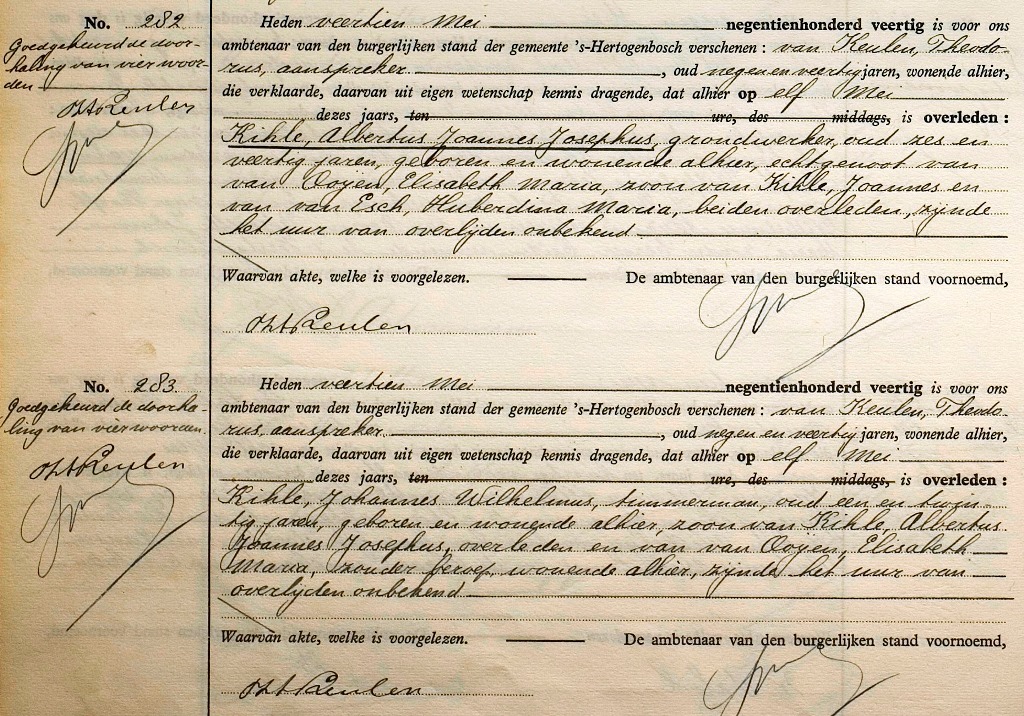 No. 282
Goedgekeurd de door-
haling van vier woor-
den
Heden veertien Mei negentienhonderd veertig is voor ons
ambtenaar van den burgerlijken stand der gemeente 's-Hertogenbosch verschenen : van Keulen, Theodo-
rus, aanspreker, oud negen en veertig jaren, wonende alhier,
die verklaarde, daarvan uit eigen wetenschap kennis dragende, dat alhier op elf Mei
dezes jaars, ten ure, des middags, is overleden :
Kihle, Albertus Joannes Josephus, grondwerker, oud zes en
veertig jaren, geboren en wonende alhier, echtgenoot van
van Ooijen, Elisabeth Maria, zoon van Kihle, Joannes en
van van Esch, Huberdina Maria, beiden overleden, zijnde
het uur van overlijden onbekend
Waarvan akte, welke is voorgelezen. De ambtenaar van den burgerlijken stand voornoemd,
No. 283
Goedgekeurd de doorha-
ling van vier woorden.
Heden veertien Mei negentienhonderd veertig is voor ons
ambtenaar van den burgerlijken stand der gemeente 's-Hertogenbosch verschenen : van Keulen, Theodo-
rus, aanspreker, oud negen en veertig jaren, wonende alhier,
die verklaarde, daarvan uit eigen wetenschap kennis dragende, dat alhier op elf Mei
dezes jaars, ten ure, des middags, is overleden :
Kihle, Johannes Wilhelmus, timmerman, oud een en twin-
tig jaren, geboren en wonende alhier, zoon van Kihle, Albertus
Joannes Josephus, overleden en van van Ooijen, Elisabeth
Maria, zonder beroep, wonende alhier, zijnde het uur van
overlijden onbekend
Waarvan akte, welke is voorgelezen. De ambtenaar van den burgerlijken stand voornoemd,